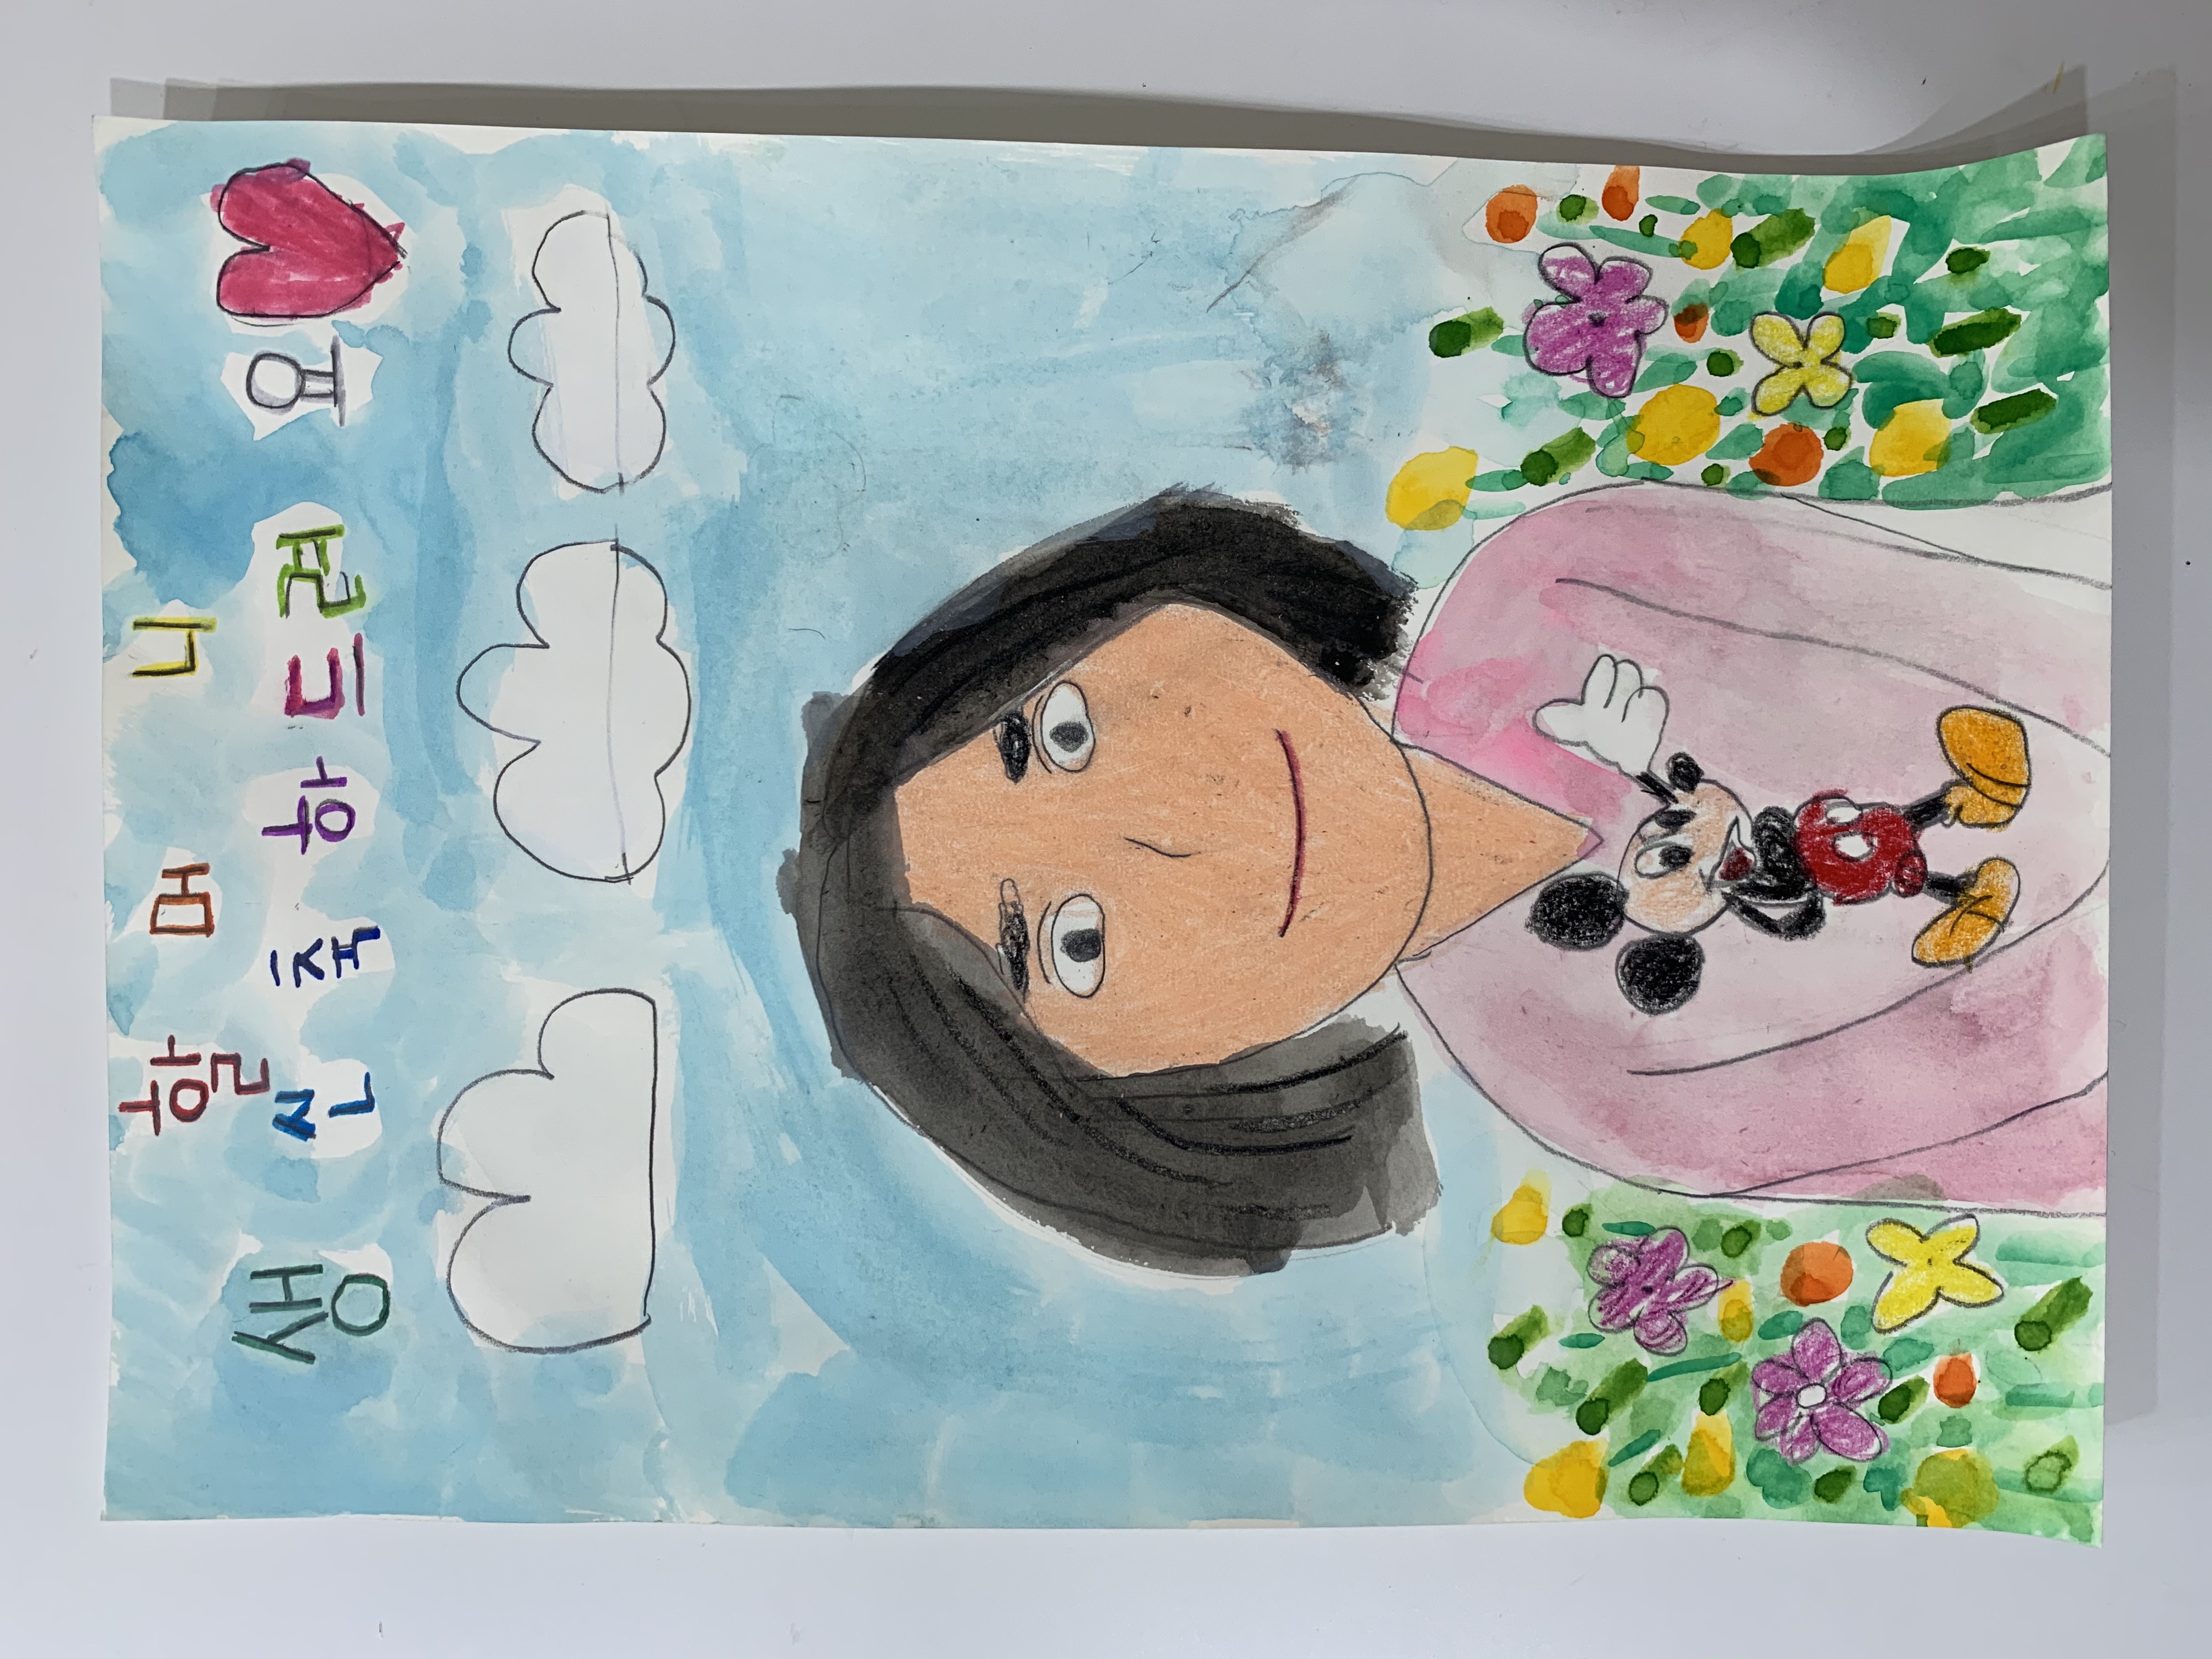 할머니
생신축하드려요